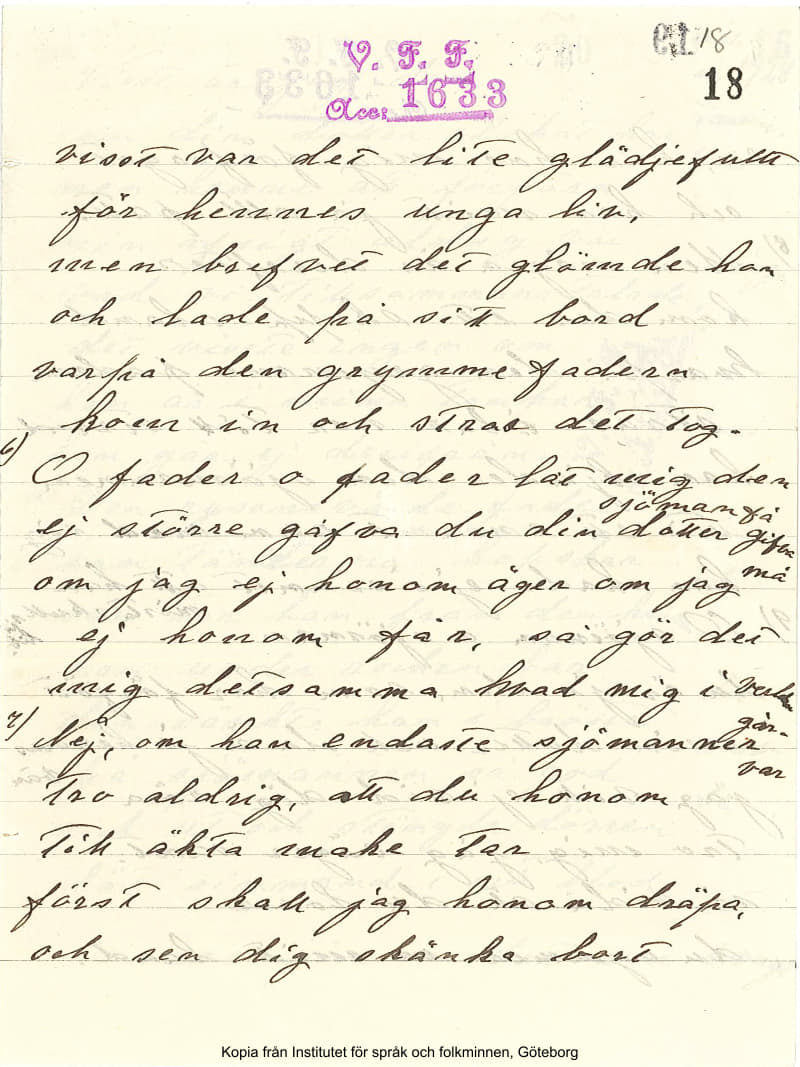 18
V. F. F.
18
Acc: 1633
visst var det lite glädjefullt
för hennes unga liv,
men brefvet det glömde hon
och lade på sitt bord
varpå den grymme fadern
kom in och strax det tog.
6)
O fader o fader låt mig den
sjöman få
ej större gåfva du din dotter gifva
må
om jag ej honom äger om jag
ej honom får, så gör det
mig detsamma hvad mig i verlden
går.
7)
Nej, om han endaste sjömannen
var
tro aldrig, att du honom
till äkta make tar
först skall jag honom dräpa,
och sen dig skänka bort
Kopia från Institutet för språk och folkminnen, Göteborg